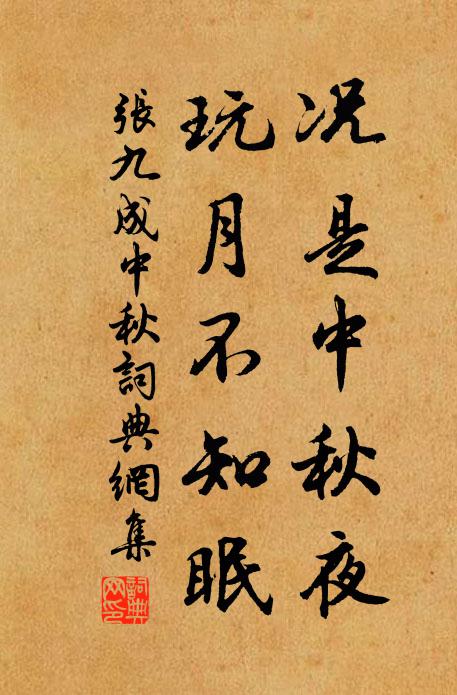 况是中秋夜
玩月不知眠
張九成中秋詞典網集
詞典网印